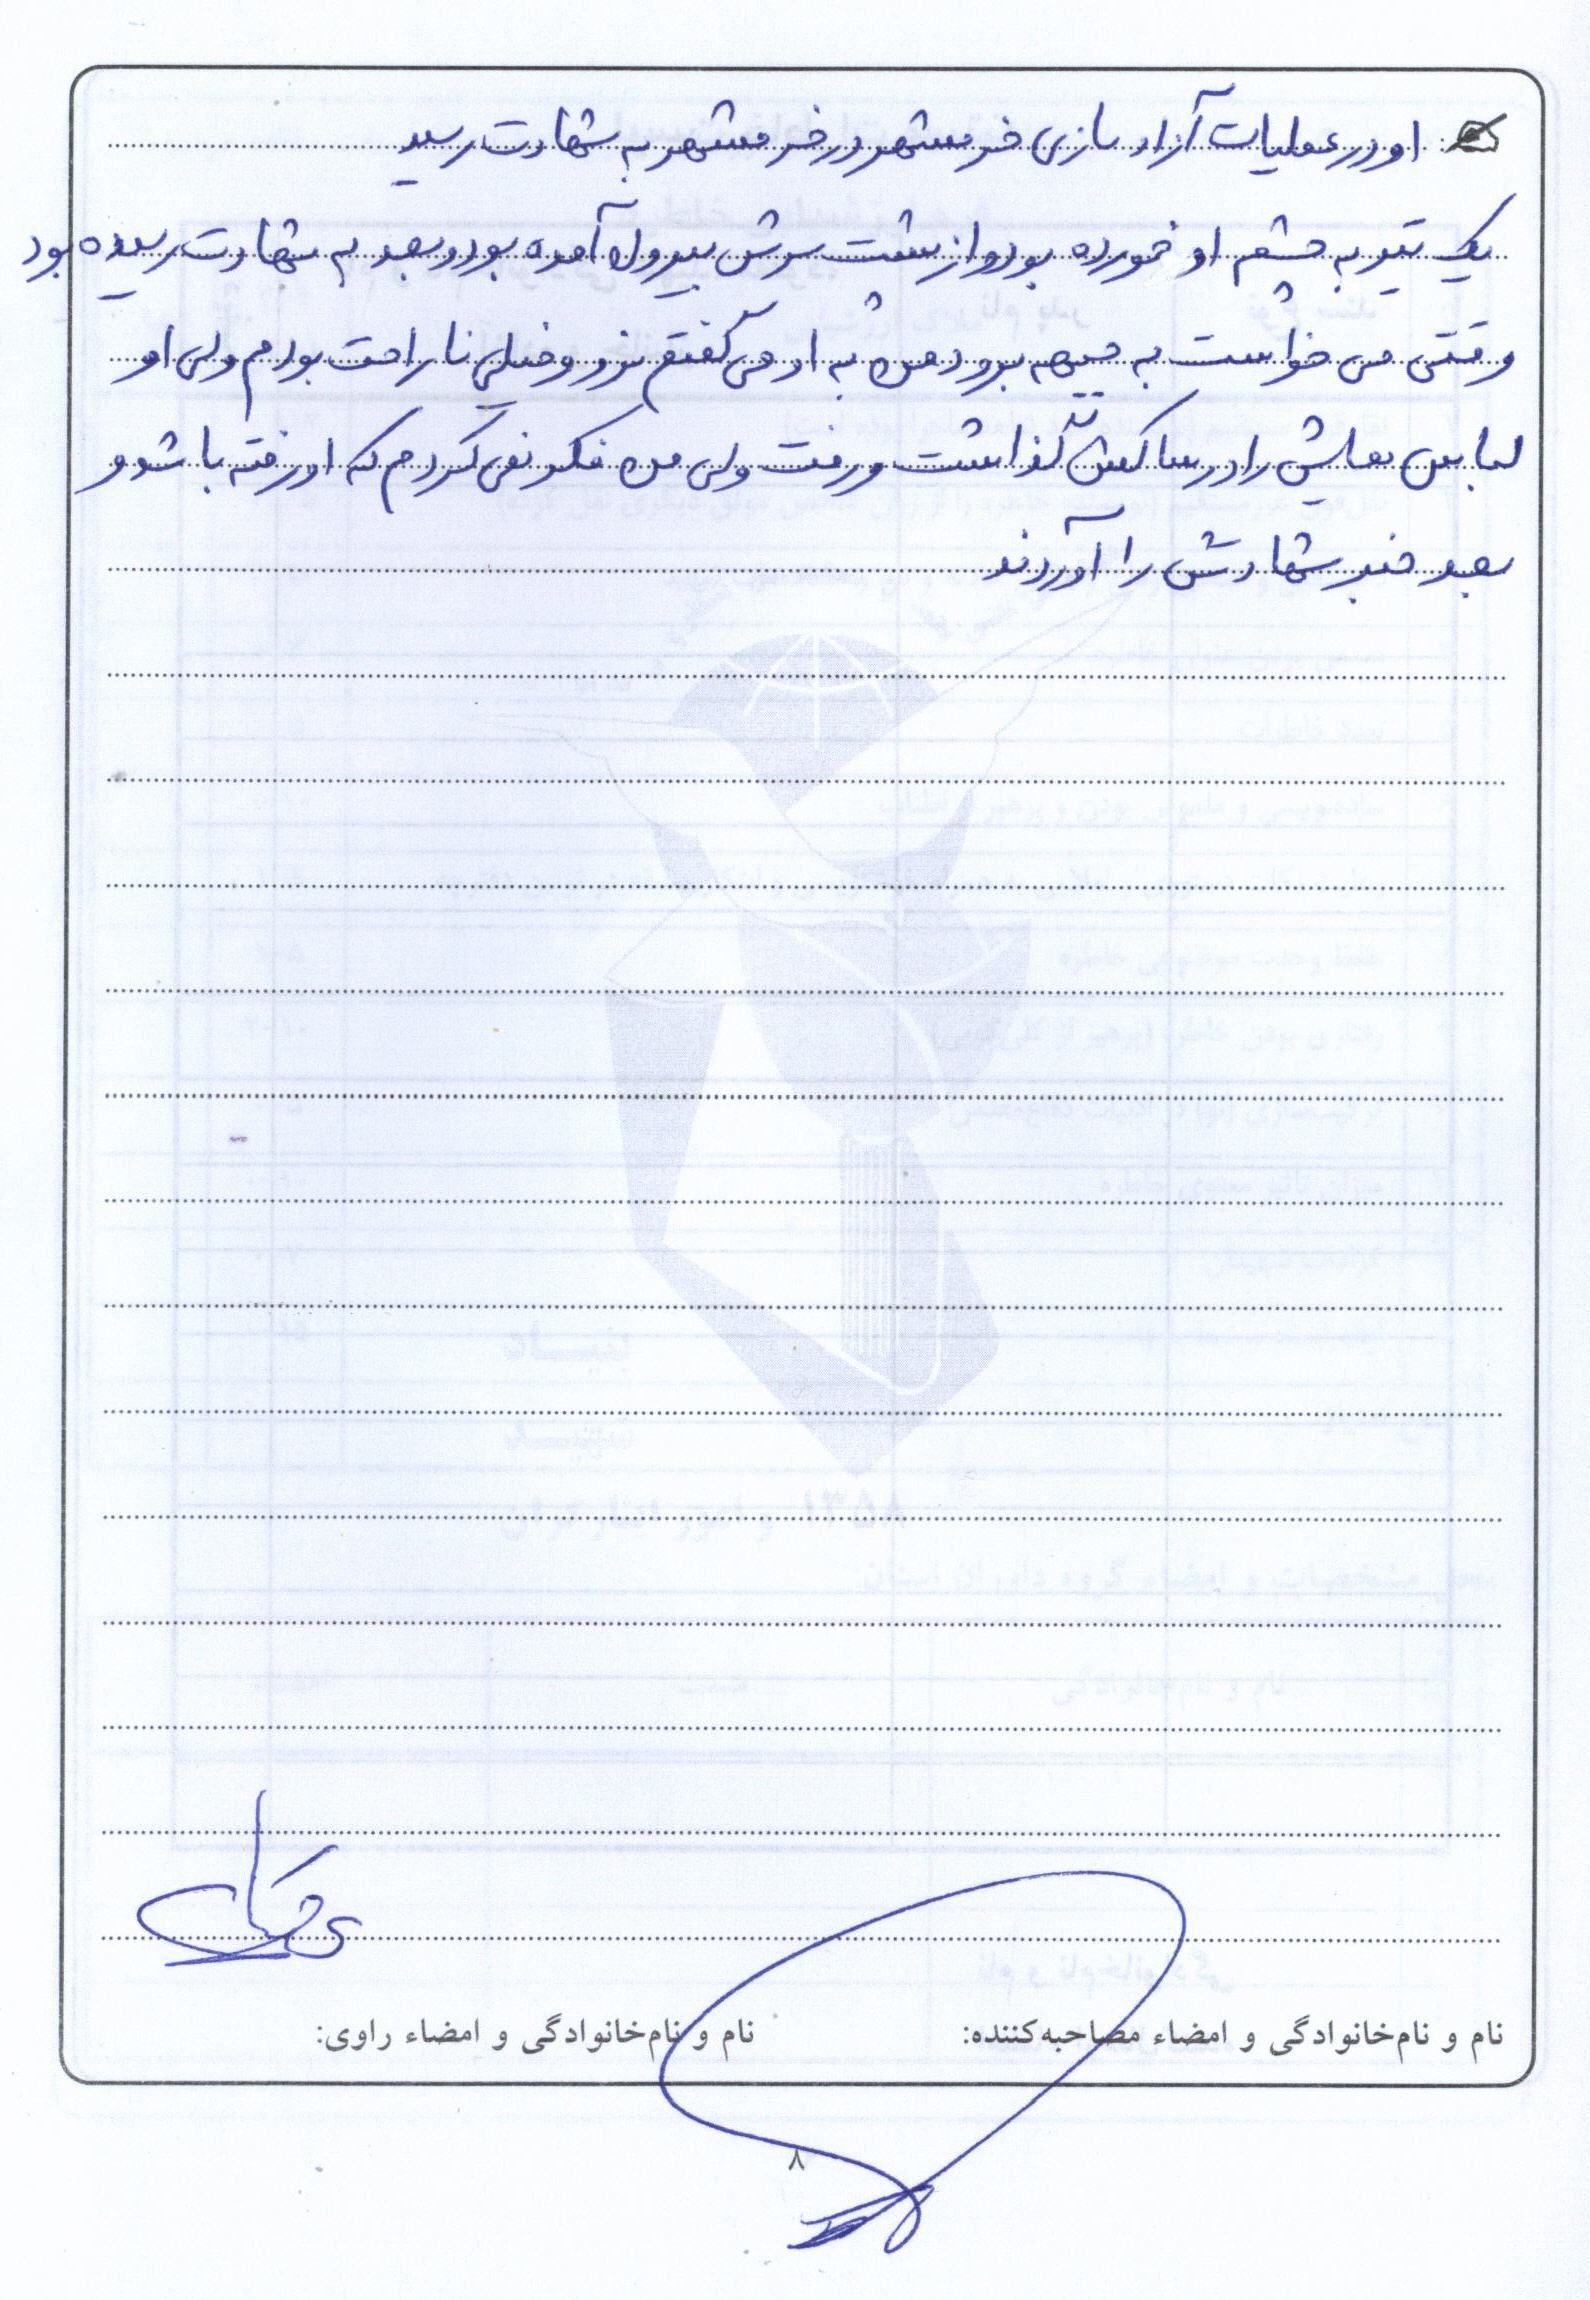 او در عملیات آزاد سازی خرمشهر در خرمشهر به شهادت رسید
یک تیر به چشم او خورده بود و از پشت سرش بیرون آمده بود و بعد به شهادت رسیده بود
وقتی می خواست به جبهه برود من به او می گفتم نرو و خیلی ناراحت بودم ولی او
لباس هایش را در ساکش گذاشت و رفت ولی من فکر نمی کردم که او رفته باشد و
بعد خبر شهادتش را آوردند
نام و نام‌خانوادگی و امضاء مصاحبه‌کننده: نام و نام‌خانوادگی و امضاء راوی:
۸